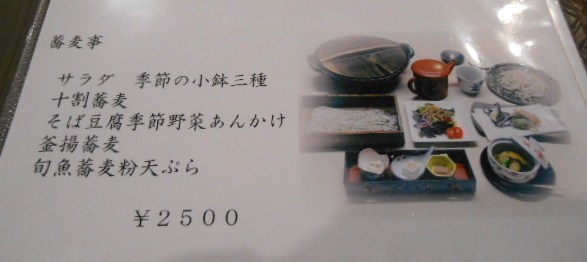 蕎麦事
サラダ　季節の小鉢三種
十割蕎麦
そば豆腐季節野菜あんかけ
釜揚蕎麦
旬魚蕎麦粉天ぷら
￥２５００